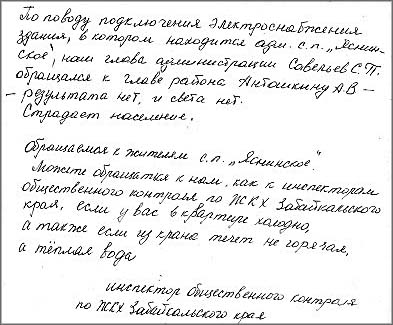 По поводу подключения электроснабжения
здания, в котором находится адм. с.п. „Яснин-
ское", наш глава администрации Савельев С.П.
обращался к главе района Антошкину А.В –
– результата нет, и света нет.
Страдает население.
Обращаемся к жителям с.п. „Яснинское".
Можете обратиться к нам, как к инспекторам
общественного контроля по ЖКХ Забайкальского
края, если у вас в квартире холодно,
а также если из крана течет не горячая,
а тёплая вода
инспектор общественного контроля
по ЖКХ Забайкальского края